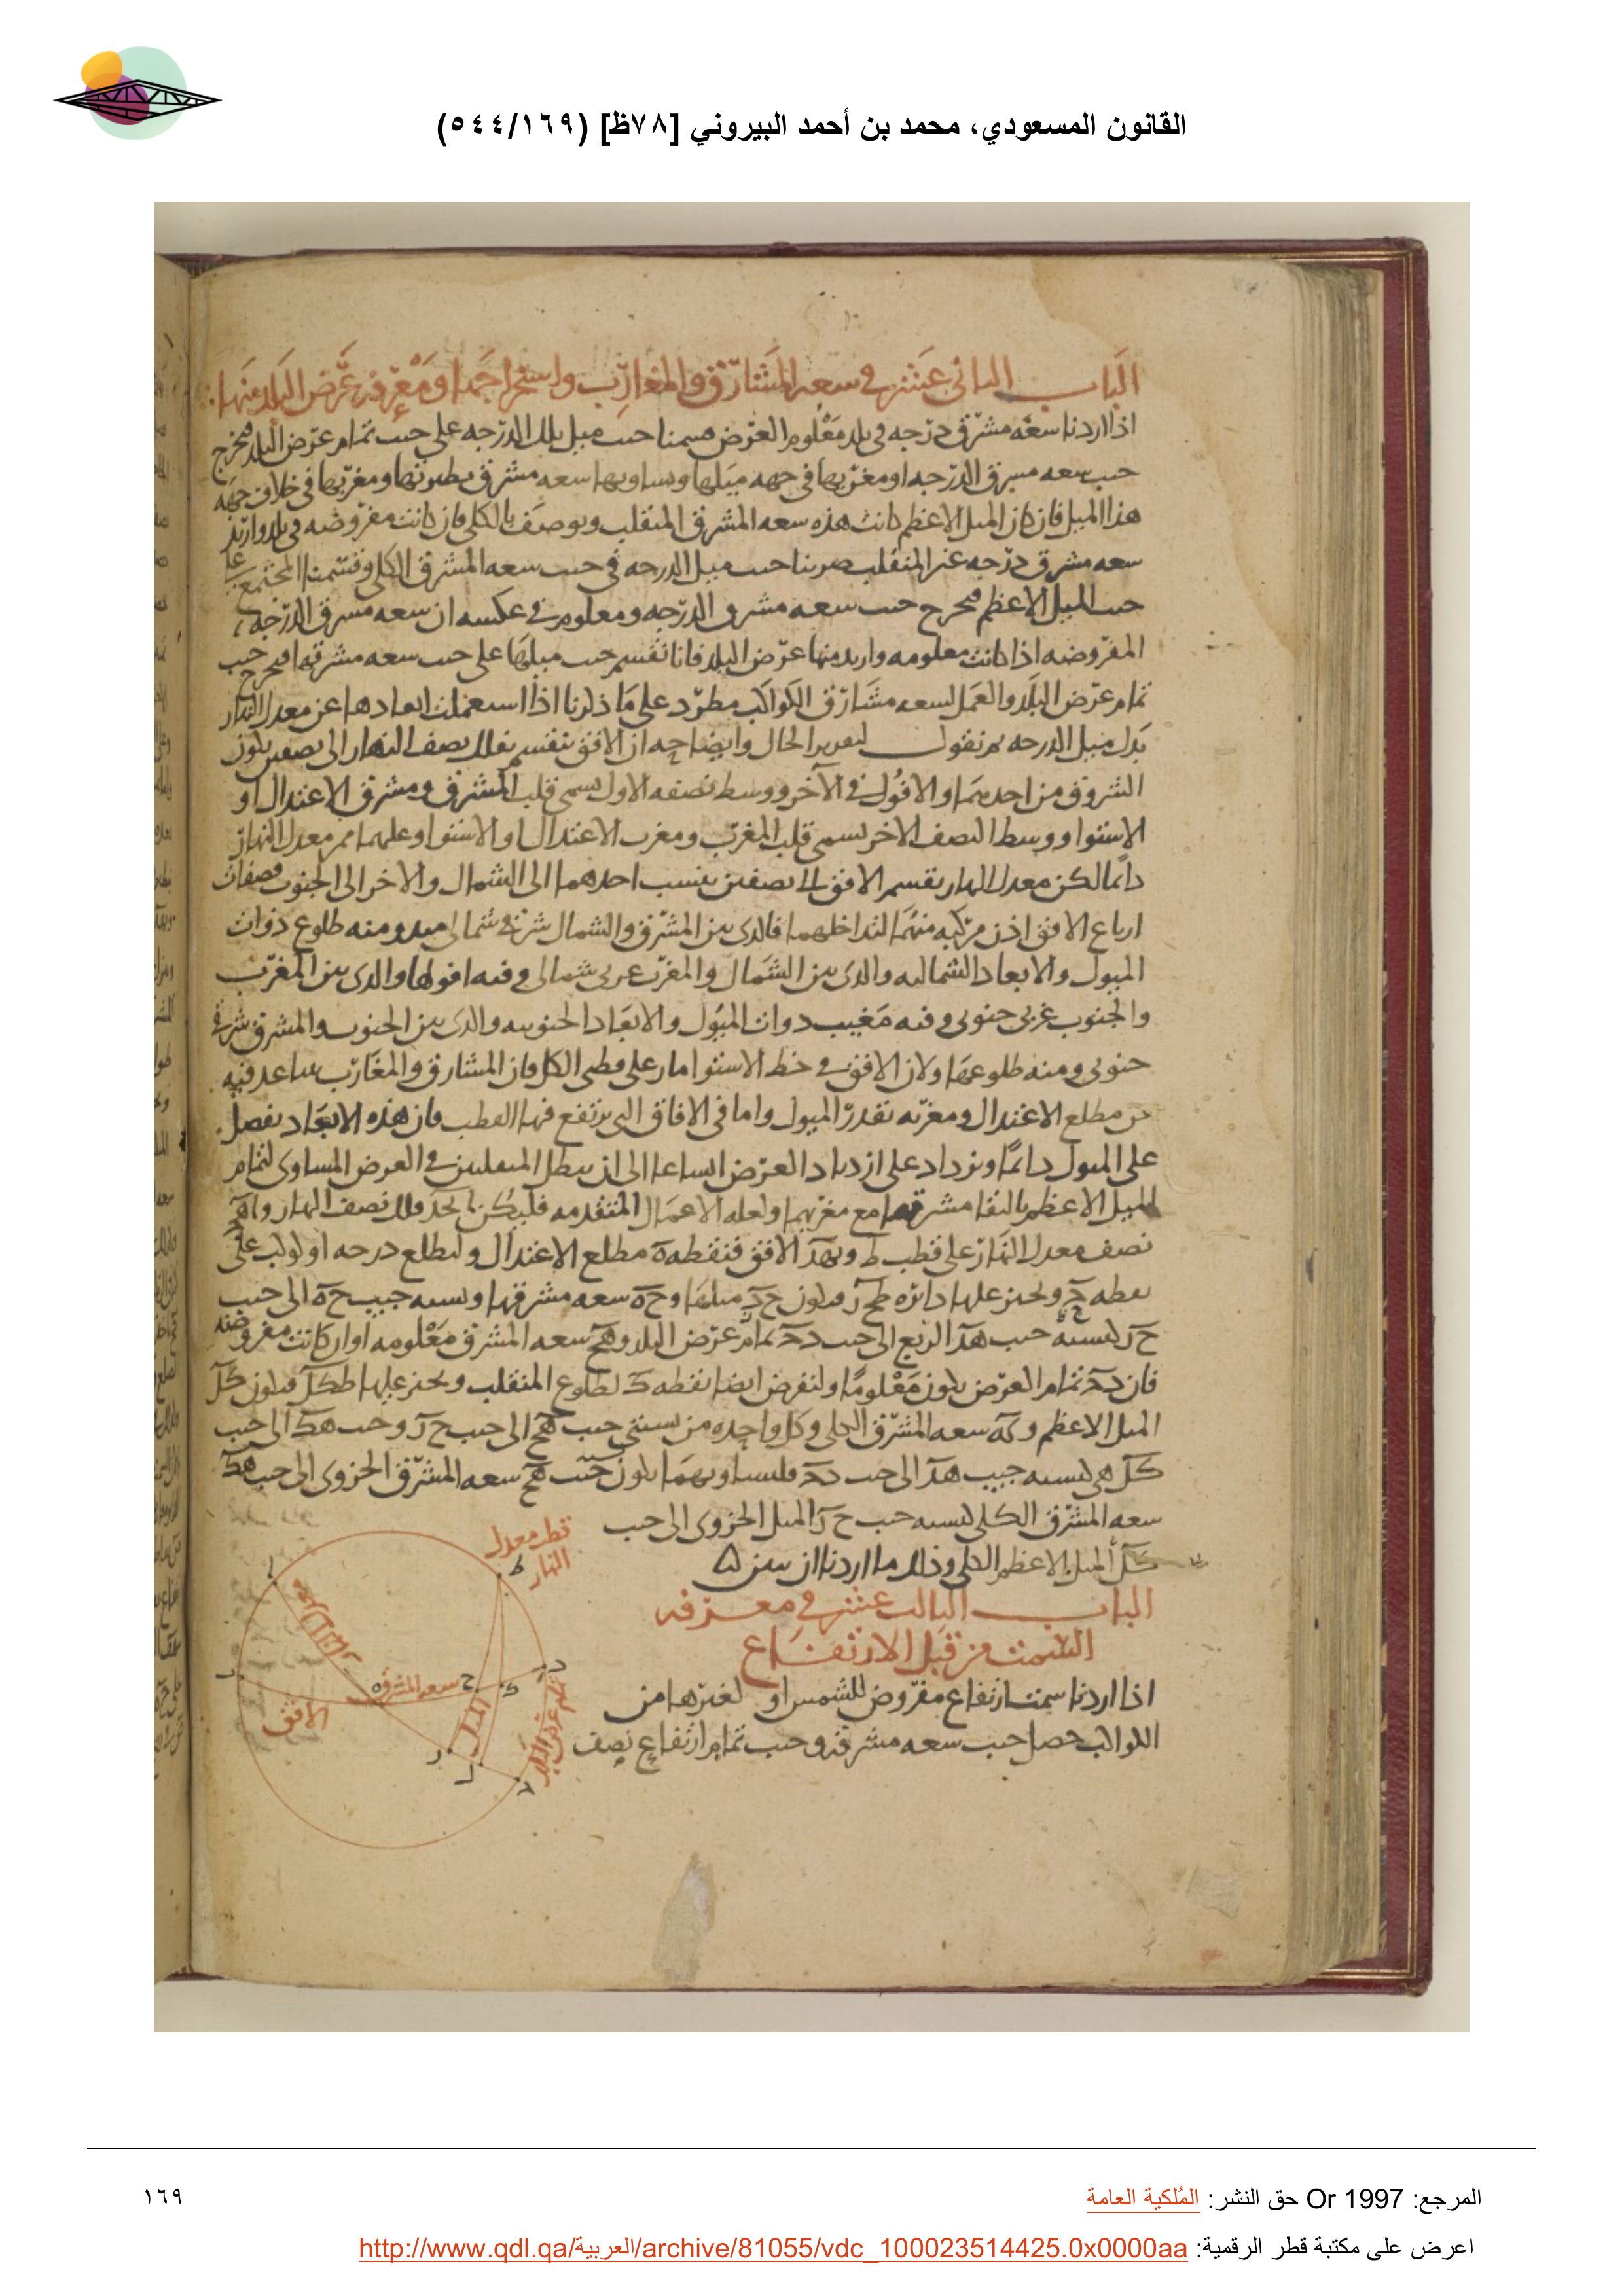 القانون المسعودي، محمد بن أحمد البيروني [٧٨ظ] (٥٤٤/١٦٩)
الباب الثاني عشر في سعه المشارق والمغارب واستخراجها ومعرفه عرض البلد منها
اذا اردنا سعه مشرق درجه في بلد معلوم العرض قسمنا جيب ميل تلك الدرجه على جيب تمام عرض البلد فيخرج
جيب سعه مشرق الدرجه او مغربها في جهه ميلها ويساويها سعه مشرق نظيرتها ومغربها في خلاف جهه
هذا الميل فان كان الميل الاعظم كانت هذه سعه المشرق المنقلب ويوصف بالكلي فان كانت مفروضه في بلد واريد
سعه مشرق درجه غير المنقلب ضربنا جيب ميل الدرجه في جيب سعه المشرق الكلي وقسمنا المجتمع على
جيب الميل الاعظم فيخرج جيب سعه مشرق الدرجه ومعلوم في عكسه ان سعه مشرق الدرجه
المفروضه اذا كانت معلومه واريد منها عرض البلد فانا نقسم جيب ميلها على جيب سعه مشرقها فيخرج جيب
تمام عرض البلد والعمل لسعه مشارق الكواكب مطرد على ما ذكرنا اذا استعملت ابعادها عن معدل النهار
بدل ميل الدرجه ثم نقول لتقرير الحال وايضاحه ان الافق ينقسم بفلك نصف النهار الى نصفين يكون
الشروق من احدهما والافول في الآخر ووسط نصفه الاول يسمى قلب المشرق ومشرق الاعتدال او
الاستوا ووسط النصف الاخر يسمى قلب المغرب ومغرب الاعتدال او الاستوا وعليهما ممر معدل النهار
دائما لكن معدل النهار يقسم الافق الى نصفين ينسب احدهما الى الشمال والاخر الى الجنوب فصفات
ارباع الافق اذن مركبه منهما لتداخلهما فالذي بين المشرق والشمال شرقي شمالي ومنه طلوع ذوات
الميول والابعاد الشماليه والذي بين الشمال والمغرب غربي شمالي وفيه افولها والذي بين المغرب
والجنوب غربي جنوبي وفيه مغيب ذوات الميول والابعاد الجنوبيه والذي بين الجنوب والمشرق شرقي
جنوبي ومنه طلوعها ولان الافق في خط الاستوا مار على قطبي الكل فان المشارق والمغارب تتباعد فيه
عن مطلع الاعتدال ومغربه بقدر الميول واما في الافاق التي يرتفع فيها القطب فان هذه الابعاد تفضل
على الميول دائما وتزداد على ازدياد العرض اتساعا الى ان يبطل المنقلبين في العرض المساوي لتمام
الميل الاعظم بالتقا مشرقهما مع مغربهما ولعله الاعمال المتقدمه فليكن فلك نصف النهار
نصف معدل النهار على قطب ط وبهد الافق فنقطه ه مطلع الاعتدال وليطلع درجه او كوكب على
نقطه ح ونجيز عليها دائره طح ر فيكون ح ر ميلها وح ه سعه مشرقها ونسبه جيب ح ه الى جيب
ح ر كنسبه جيب هد الربع الى جيب دح تمام عرض البلد وهح سعه المشرق معلومه او ان كانت مفروضه
فان دح تمام العرض يكون معلوما ولنفرض ايضا نقطه ك لطلوع المنقلب ونجيز عليها طكل فيكون كل
الميل الاعظم وكه سعه المشرق الكلي وكل واحده من نسبتي جيب هح الى جيب ح ر وجيب هك الى جيب
كل هي كنسبه جيب هد الى جيب دح فلتساويهما يكون جيب هح سعه المشرق الجزوي الى جيب هك
سعه المشرق الكلي كنسبه جيب ح ر الميل الجزوي الى جيب
كل الميل الاعظم الكلي وذلك ما اردنا ان نبين
الباب الثالث عشر في معرفه
السمت من قبل الارتفاع
اذا اردنا سمت ارتفاع مفروض للشمس او لغيرها من
الكواكب حصل جيب سعه مشرقه وجيب تمام ارتفاع نصف
قطر معدل
النهار
ط
سعه المشرق
الافق
الميل
تمام عرض البلد
المرجع: Or 1997 حق النشر: المُلكية العامة
١٦٩
اعرض على مكتبة قطر الرقمية: http://www.qdl.qa/العربية/archive/81055/vdc_100023514425.0x0000aa